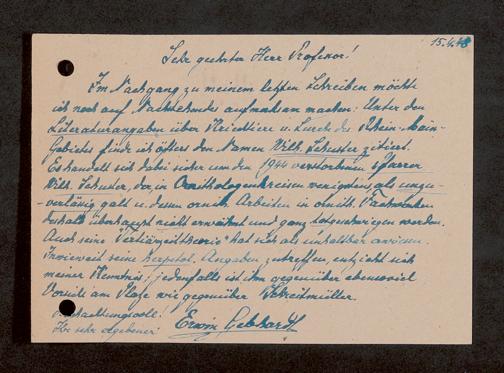 15.4.48
Sehr geehrter Herr Professor!
Im Nachgang zu meinem letzten Schreiben möchte
ich noch auf Nachstehendes aufmerksam machen: Unter den
Literaturangaben über Kriechtiere u. Lurche des Rhein-Main-
Gebietes finde ich öfters den Namen Wilh. Schuster zitiert.
Es handelt sich dabei sicher um den 1944 verstorbenen Pfarrer
Wilh. Schuster, der in Ornithologenkreisen wenigstens als unzu-
verlässig galt u. dessen ornith. Arbeiten in ornith. Fachkreisen
deshalb überhaupt nicht erwähnt und ganz totgeschwiegen werden.
Auch seine "Tertiärzeittheorie" hat sich als unhaltbar erwiesen.
Inwieweit seine herpetol. Angaben zutreffen, entzieht sich
meiner Kenntnis, jedenfalls ist ihm gegenüber ebensoviel
Vorsicht am Platze wie gegenüber Schreitmüller.
Hochachtungsvoll!
Ihr sehr ergebener
Erwin Gebhardt